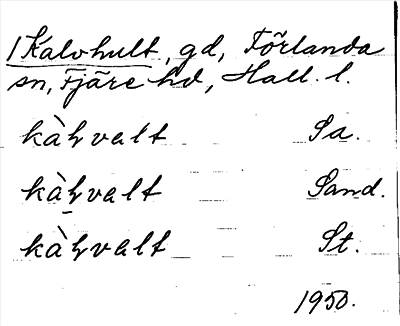 1 Kalvhult, gd, Förlanda
sn, Fjäre hd, Hall. l.
kàⱨvalt Sa.
kàⱨvalt Sand.
kàⱨvalt St.
1950.